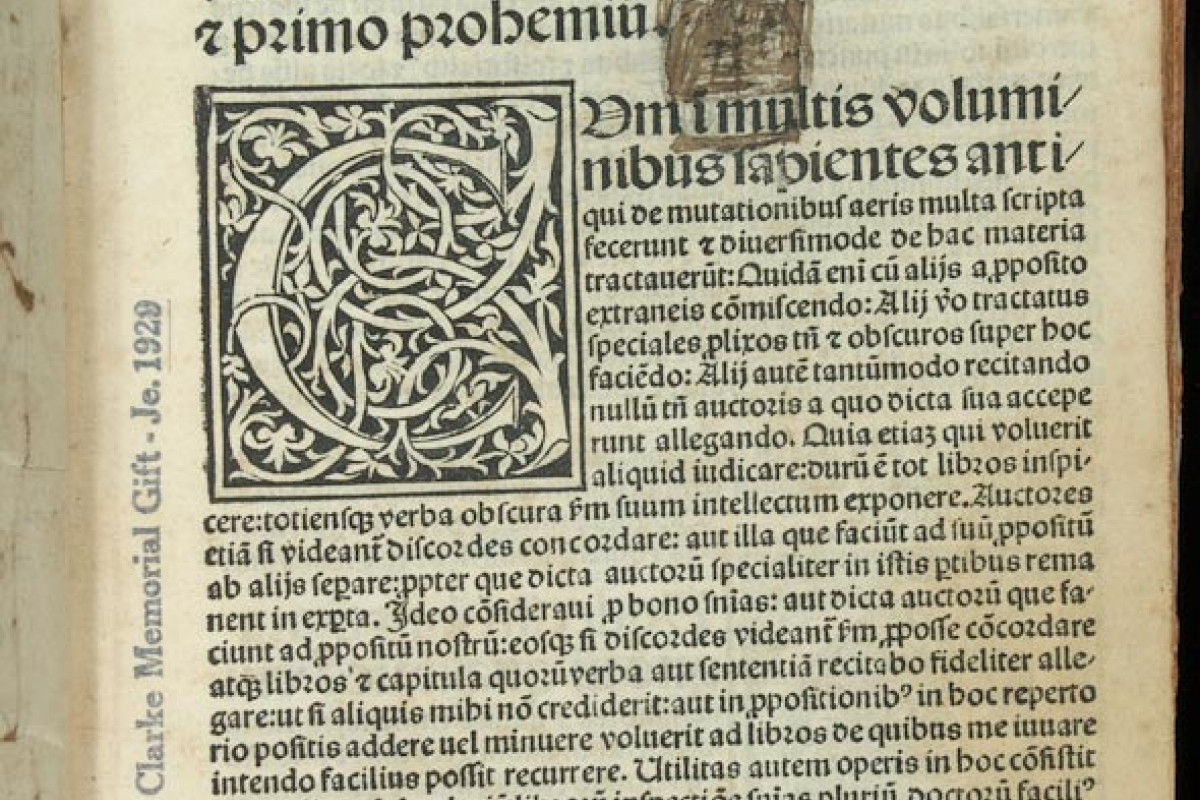 ⁊ primo prohemiū.
C Vm ī multis volumi⸗
nibus sapientes anti⸗
qui de mutationibus aeris multa scripta
fecerunt ⁊ diuersimode de hac materia
tractauerūt: Quidā eni cū alijs a ꝓposito
extraneis cōmiscendo: Alij v̄o tractatus
speciales ꝓlixos tn̄ ⁊ obscuros super hoc
faciēdo: Alij autē tantūmodo recitando
nullū tn̄ auctoris a quo dicta sua accepe
runt allegando. Quia etiaꝫ qui voluerit
aliquid iudicare: durū ē tot libros inspi⸗
cere: totiensqꝫ verba obscura ẜm suum intellectum exponere. Auctores
etiā si videant̄ discordes concordare: aut illa que faciūt ad suū ꝓpositū
ab alijs seꝑare: ꝓpter que dicta auctorū specialiter in istis ꝑtibus rema
nent in exꝑta. Ideo cōsideraui ꝓ bono sn̄ias: aut dicta auctorū que fa⸗
ciunt ad ꝓpositū nostrū: eosqꝫ si discordes videant̄ ẜm ꝓposse cōcordare
atqꝫ libros ⁊ capitula quorū verba aut sententiā recitabo fideliter alle⸗
gare: ut si aliquis mihi nō crediderit: aut in ꝓpositionibꝰ in hoc reperto
rio positis addere uel minuere voluerit ad libros de quibus me iuuare
intendo facilius possit recurrere. Utilitas autem operis in hoc cōsistit
inspectiōe sn̄ias pluriū doctorū faciliꝰ
Clarke Memorial Gift - Je. 1929